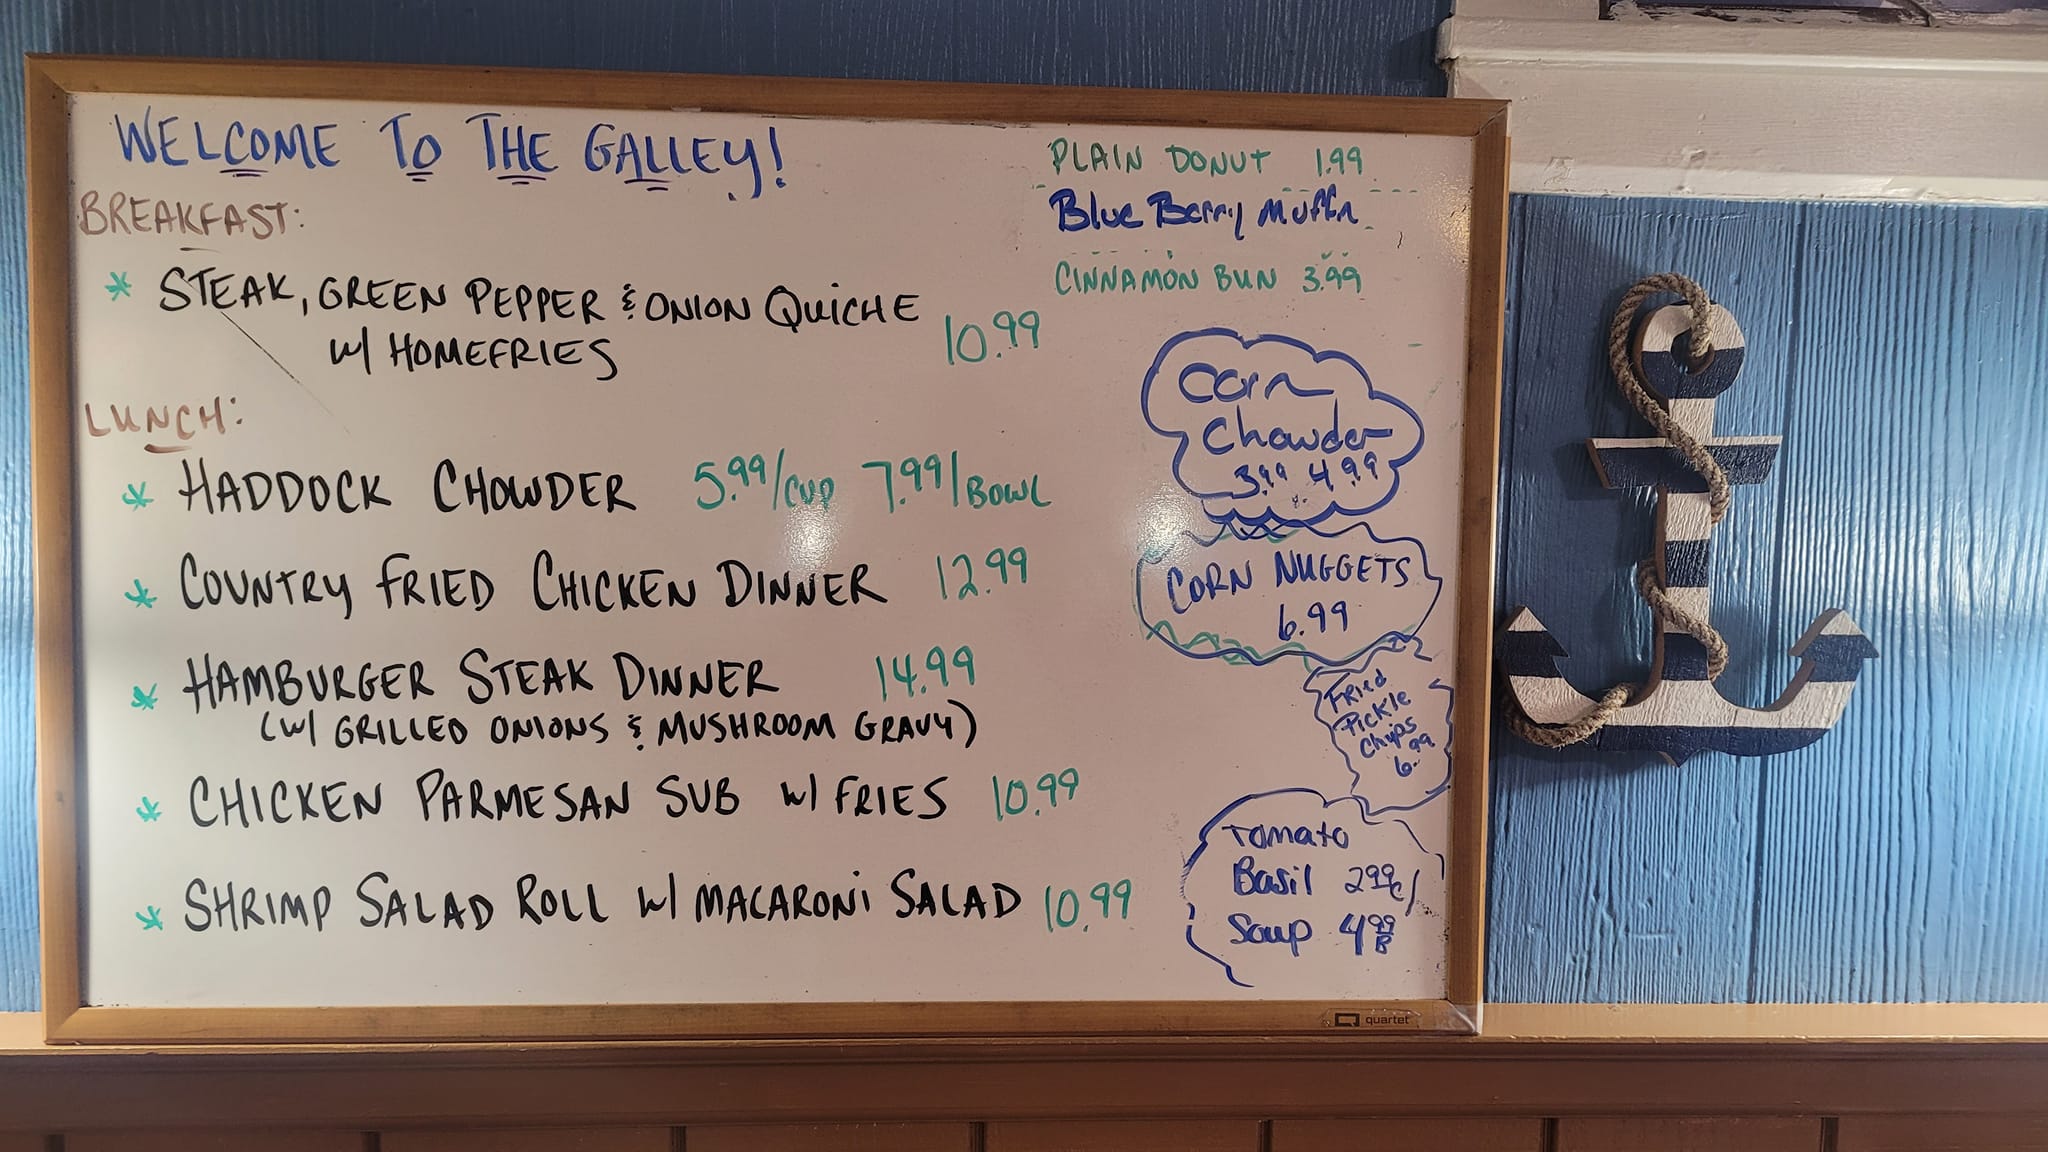 WELCOME TO THE GALLEY!
BREAKFAST:
* STEAK, GREEN PEPPER & ONION QUICHE
w/ HOMEFRIES 10.99
LUNCH:
* HADDOCK CHOWDER 5.99/CUP 7.99/BOWL
* COUNTRY FRIED CHICKEN DINNER 12.99
* HAMBURGER STEAK DINNER 14.99
(w/ GRILLED ONIONS & MUSHROOM GRAVY)
* CHICKEN PARMESAN SUB w/ FRIES 10.99
* SHRIMP SALAD ROLL w/ MACARONI SALAD 10.99
PLAIN DONUT 1.99
Blue Berry Muffin
CINNAMON BUN 3.99
Corn
Chowder
3.99 4.99
CORN NUGGETS
6.99
FRied
Pickle
Chips
6.99
Tomato
Basil 2.99c/
Soup 4.99 B
quartet